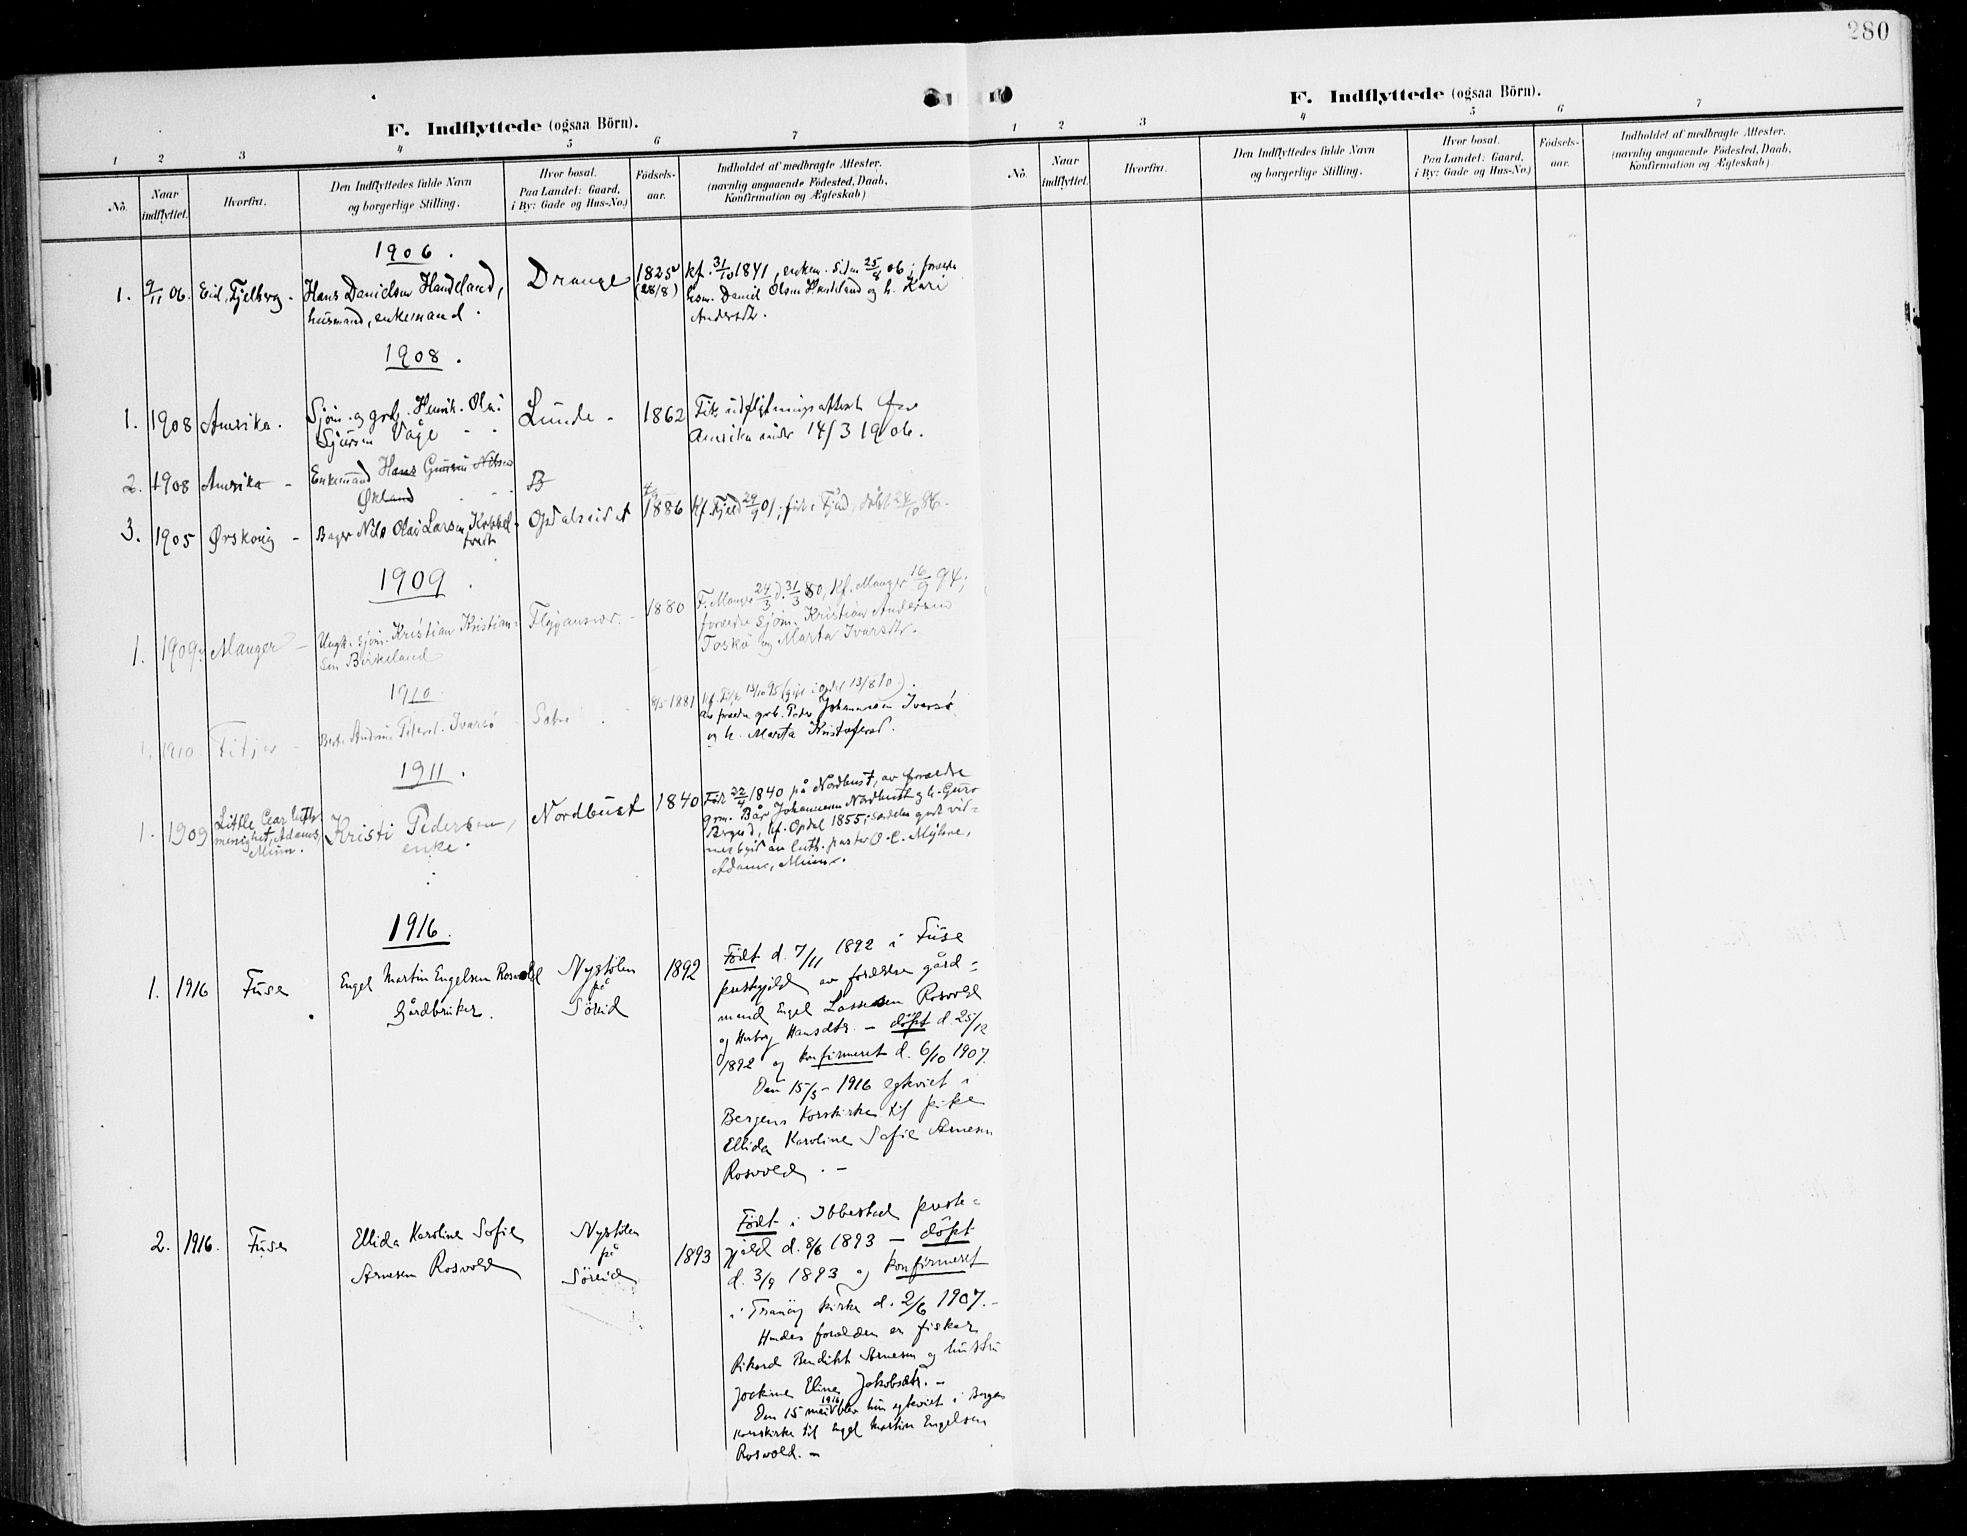 280
F. Indflyttede (ogsaa Börn).
1 2 3 4 5 6 7
No.
Naar indflyttet.
Hvorfra.
Den Indflyttedes fulde Navn
og borgerlige Stilling.
Hvor bosat.
Paa Landet: Gaard,
i By: Gade og Hus-No.)
Födsels-
aar.
Indholdet af medbragte Attester.
(navnlig angaaende Födested, Daab,
Konfirmation og Ægteskab)
1906.
1. 9/11 06. Eid, Fjelberg. Hans Danielsen Handeland,
husmand, enkemand.
Drange 1825 (28/8)
kf. 31/10 1841, enkem. siden 25/8 06; forældre
husm. Daniel Olsen Handeland og h. Kari
Andersdtr.
1908.
1. 1908 Amerika. Sjøm. og grbr. Henrik Olai
Sjursen Våge
Lunde - 1862
Fik udflytningsattest for
Amerika under 14/3 1906.
2. 1908 Amerika - Enkemand Hans Nilsen
Økland
3. 1905 Ørskoug - Bager Nils Olai Larsen
Opdalseidet 1886
kf. Fjeld 29/9 01; født i Fjeld, døbt 24/10 86.
1909
1. 1909. Manger - Ungk. sjøm. Kristian Kristian-
sen Birkeland
Flygansvær. - 1880
F. Manger 24/3 d. 31/3 80, kf. Manger 16/9 94;
forældre sjøm. Kristian Andersen
Toskø og Marta Ivarsdtr.
1910
1. 1910. Fitjar - Andrine Petersd. Ivarsø
8/5-1881
kf. Fitje 13/10 95 (gift i Opdal 13/8 10).
av forældre grb. Peder Johannesen Ivarsø
og h. Marta Kristofersd.
1911.
1. 1909 Little Cear luth.
menighet, Adams,
Minn.
Kristi Pedersen,
enke.
Nordbust 1840
Født 22/4 1840 på Nordbust, av forældre
grm. Bår Johannesen Nordbust og h. Guro
kf. Opdal 1855; særdeles godt vid-
nesbyrd av luth. pastor O. C. Myhre,
Adams, Minn.
1916.
1. 1916 Fuse Engel Martin Engelsen Rosvold
Gårdbruker.
Nystölen
på
Söreid
1892
Födt d. 7/11 1892 i Fuse
prestegjeld av foreldre gård-
mand Engel Lassesen Rosvold
og Herborg Hansdtr. - döpt d. 25/12
1892 og konfirmeret d. 6/10 1907.
Den 15/5-1916 egteviet i
Bergens Korskirke til pike
Ellida Karoline Sofie Arnesen
Rosvold. -
2. 1916. Fuse Ellida Karoline Sofie
Arnesen Rosvold
Nystölen
på
Söreid
1893
Födt i Ibbestad preste-
gjeld d. 8/6 1893 - döpt
d. 3/9 1893 og konfirmeret
i Tranöy kirke d. 2/6 1907. -
Hendes foreldre er fisker
Rikard Benedikt Arnesen og hustru
Jockine Eline Jakobsdtr. -
Den 15 mai 1916 blev hun egteviet i Bergens
Korskirke til Engel Martin Engelsen
Rosvold. -
F. Indflyttede (ogsaa Börn).
1 2 3 4 5 6 7
No.
Naar
indflyttet.
Hvorfra.
Den Indflyttedes fulde Navn
og borgerlige Stilling.
Hvor bosat.
Paa Landet: Gaard,
i By: Gade og Hus-No.)
Födsels-
aar.
Indholdet af medbragte Attester.
(navnlig angaaende Födested, Daab,
Konfirmation og Ægteskab)